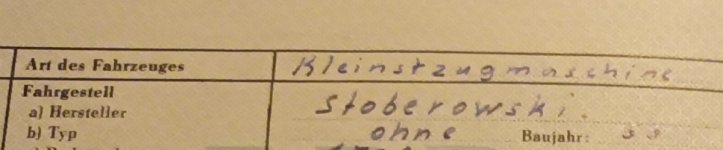 Art des Fahrzeuges Kleinstzugmaschine
Fahrgestell
a) Hersteller Stoberowski.
b) Typ ohne Baujahr: 53